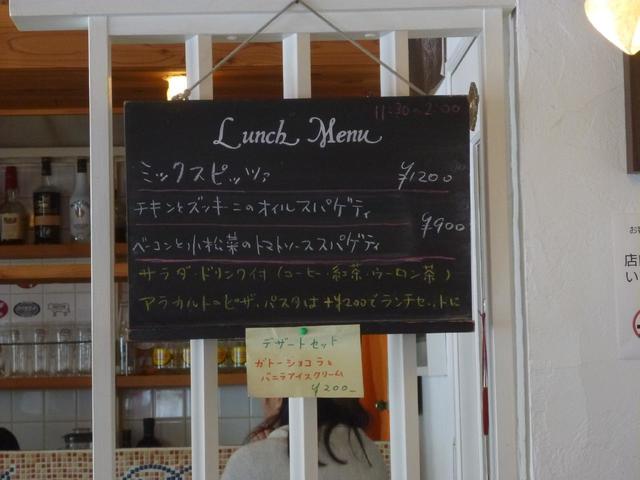 11:30~2:00
Lunch Menu
ミックスピッツァ ¥1200
チキンとズッキーニのオイルスパゲティ
¥900
ベーコンと小松菜のトマトソーススパゲティ
サラダ・ドリンク付（コーヒー・紅茶・ウーロン茶）
アラカルトのピザ・パスタは+¥200でランチセットに
デザートセット
ガトーショコラと
バニラアイスクリーム
¥200-
お客
店
い